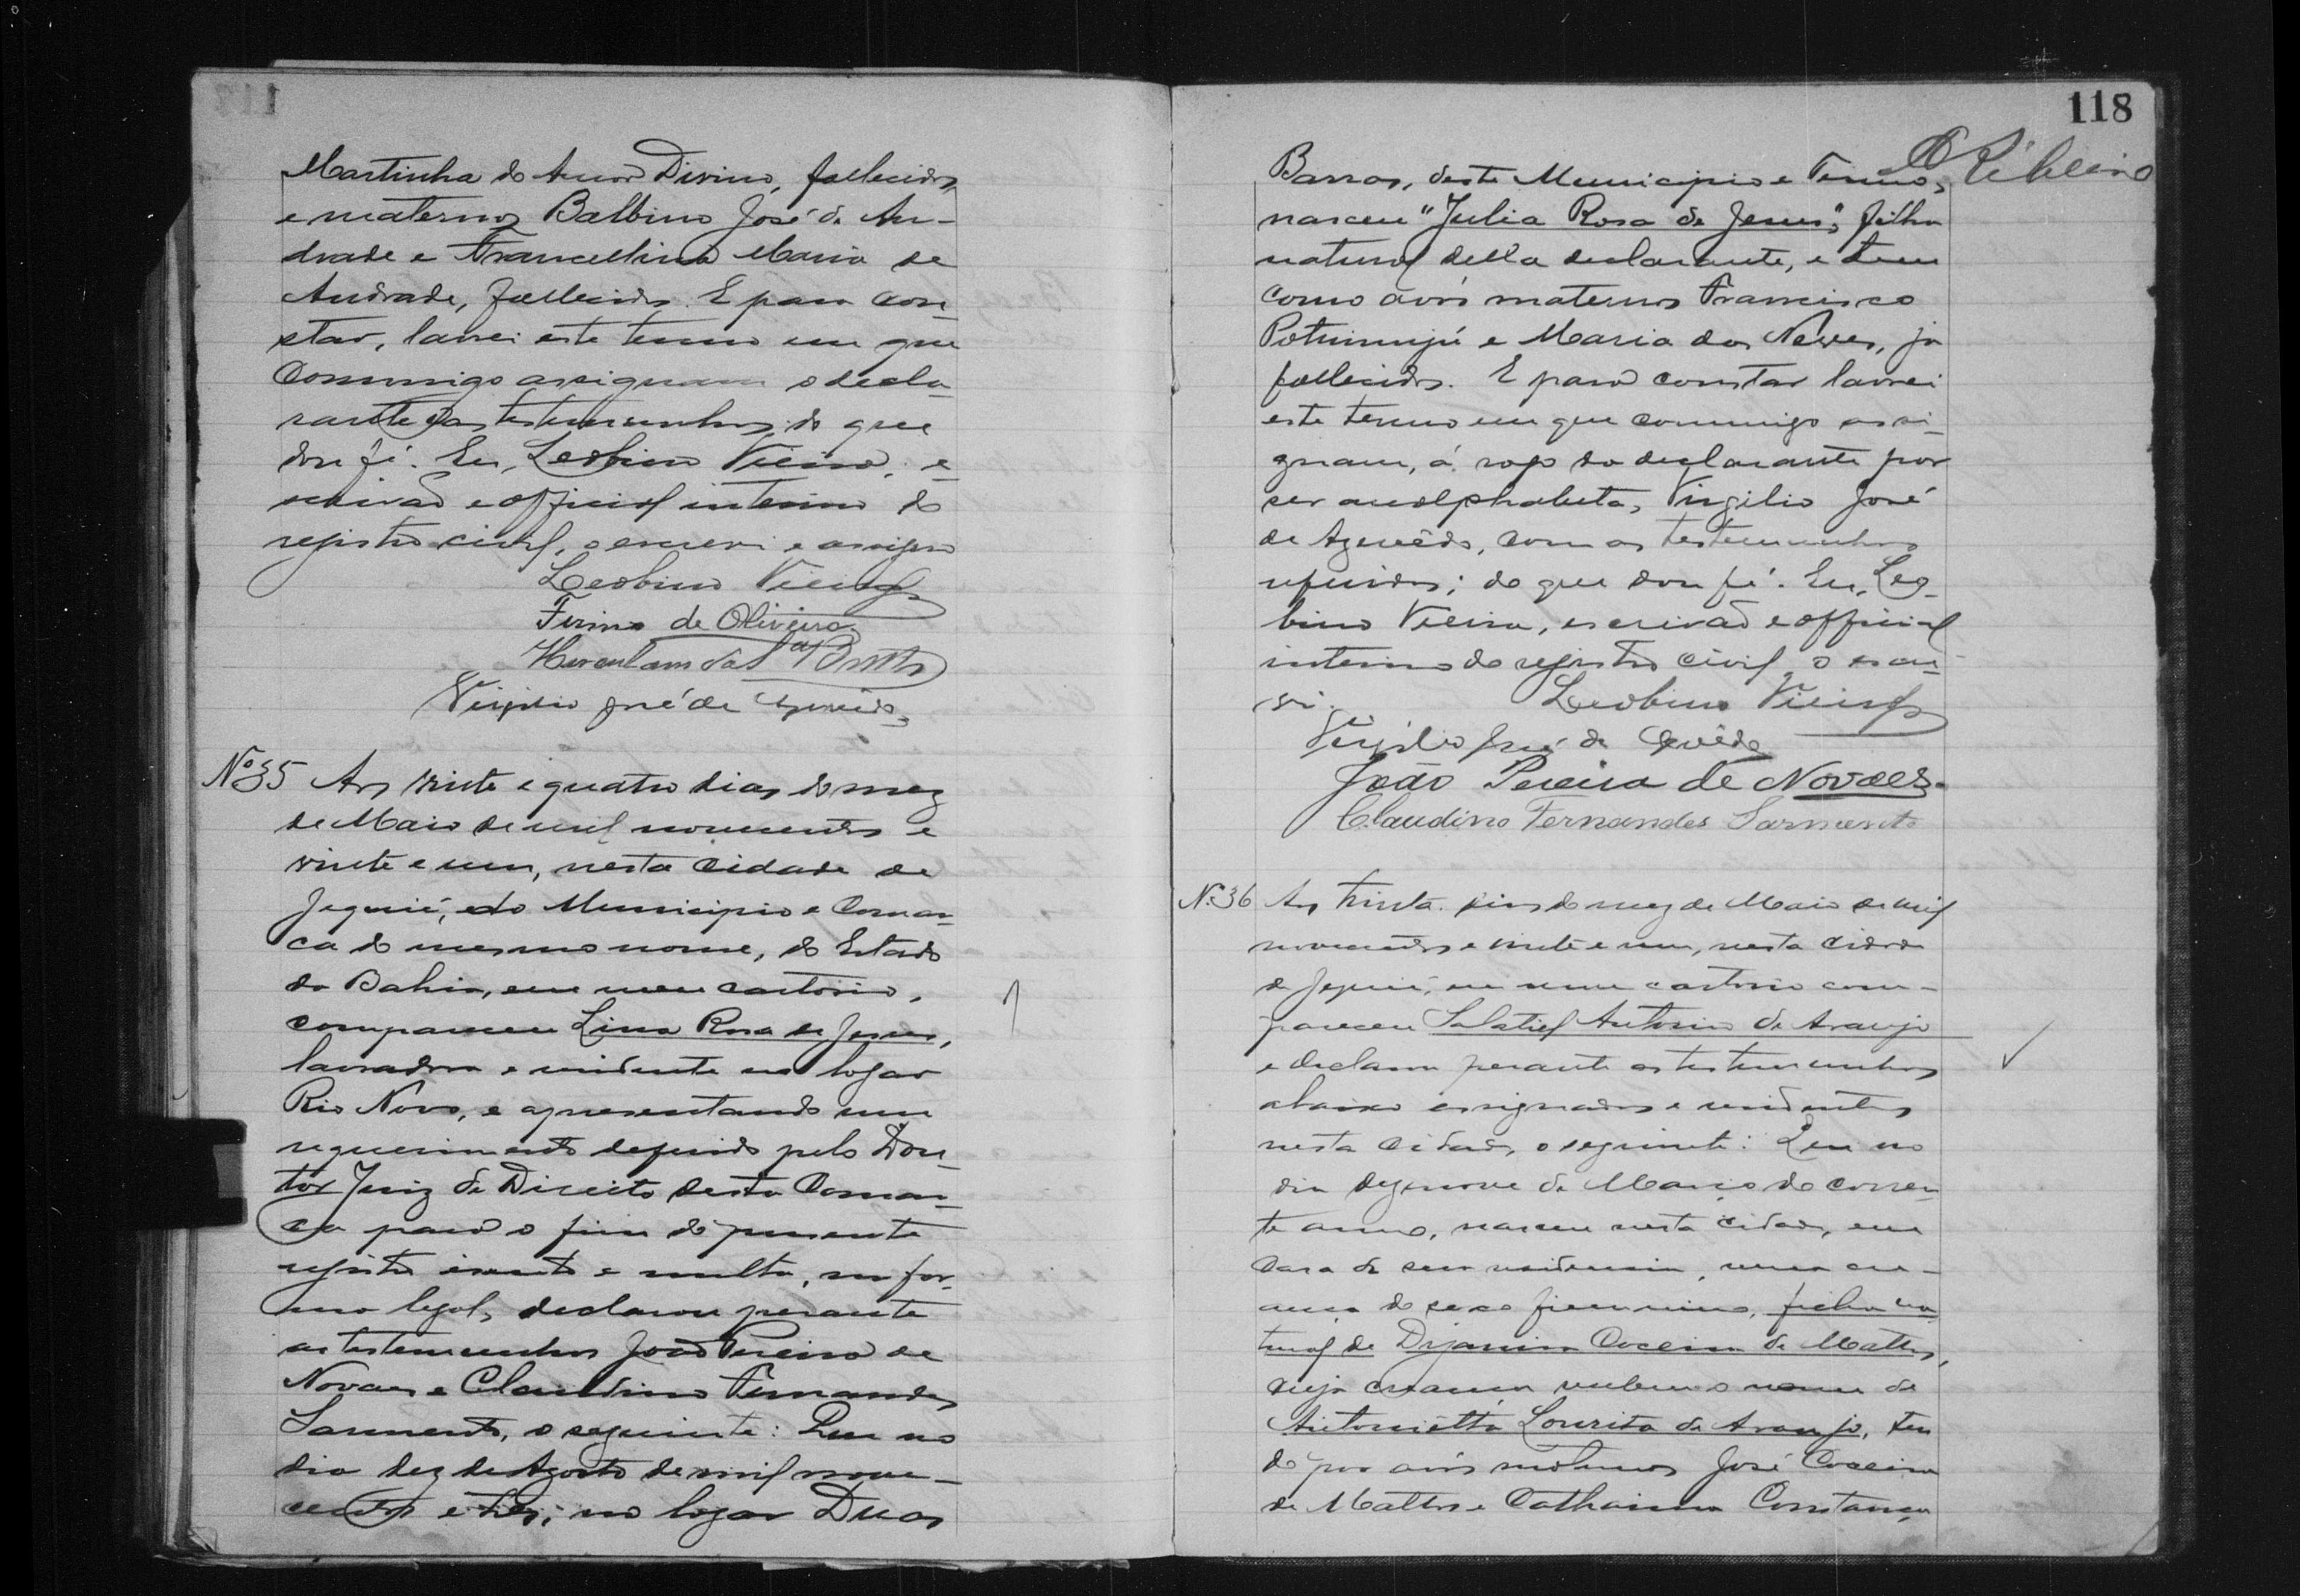 Martinha do Amor Divino, fallecidos,
e maternos Balbino José de An-
drade e Francellina Maria de
Andrade, fallecidos. E para con-
star, lavrei este termo em que
commigo assignam o decla-
rante e as testemunhas; do que
dou fé. Eu, Leobino Vieira, e-
scrivão e official interino do
registro civil, o escrevi e assigno
Leobino Vieira
Firmo de Oliveira
Herculano da Sª Britto
Virgilio José de Azevêdo,
Nº 35 Aos vinte e quatro dias do mez
de Maio de mil novecentos e
vinte e um, nesta Cidade de
Jequié, do Municipio e Comar-
ca do mesmo nome, do Estado
da Bahia, em meu cartorio,
compareceu Lina Rosa de Jesus,
lavradora e residente no logar
Rio Novo, e apresentando um
requerimento deferido pelo Dou-
tor Juiz de Direito desta Comar-
ca para o fim do presente
registro isento e multa, na for-
ma legal, declarou perante
as testemunhas João Pereira de
Novaes e Claudino Fernandes
Sarmento, o seguinte: Que no
dia dez de Agosto de mil nove-
centos e tres, no logar Duas
118
Ribeiro
Barras, deste Municipio e Termo,
nasceu "Julia Rosa de Jesus", filha
natural della declarante, e tem
como avós maternos Francisco
e Maria das Neves, já
fallecidos. E para constar lavrei
este termo em que commigo assi-
gnam, á rogo da declarante por
ser analphabeta, Virgilio José
de Azevêdo, com as testemunhas
referidas; do que dou fé. Eu, Leo-
bino Vieira, escrivão e official
interino do registro civil, o escre-
vi. Leobino Vieira
Virgilio José de Azevêdo
João Pereira de Novaes.
Claudino Fernandes Sarmento
Nº 36 Aos trinta dias do mez de Maio de mil
novecentos e vinte e um, nesta cidade
de Jequié, em meu cartorio com-
pareceu Salatiel Antonio de Araujo
e declarou perante as testemunhas
abaixo assignadas e residentes
nesta Cidade, o seguinte: Que no
dia dezenove de Março do corren-
te anno, nasceu nesta cidade, em
casa de sua residencia, uma cre-
ança do sexo feminino, filha na-
tural de Dejanira Coceira de Mattos,
cuja creança recebeu o nome de
Antonietta Lourita de Araujo, ten-
do por avós maternos José Coceira
de Mattos e Catharina Constança